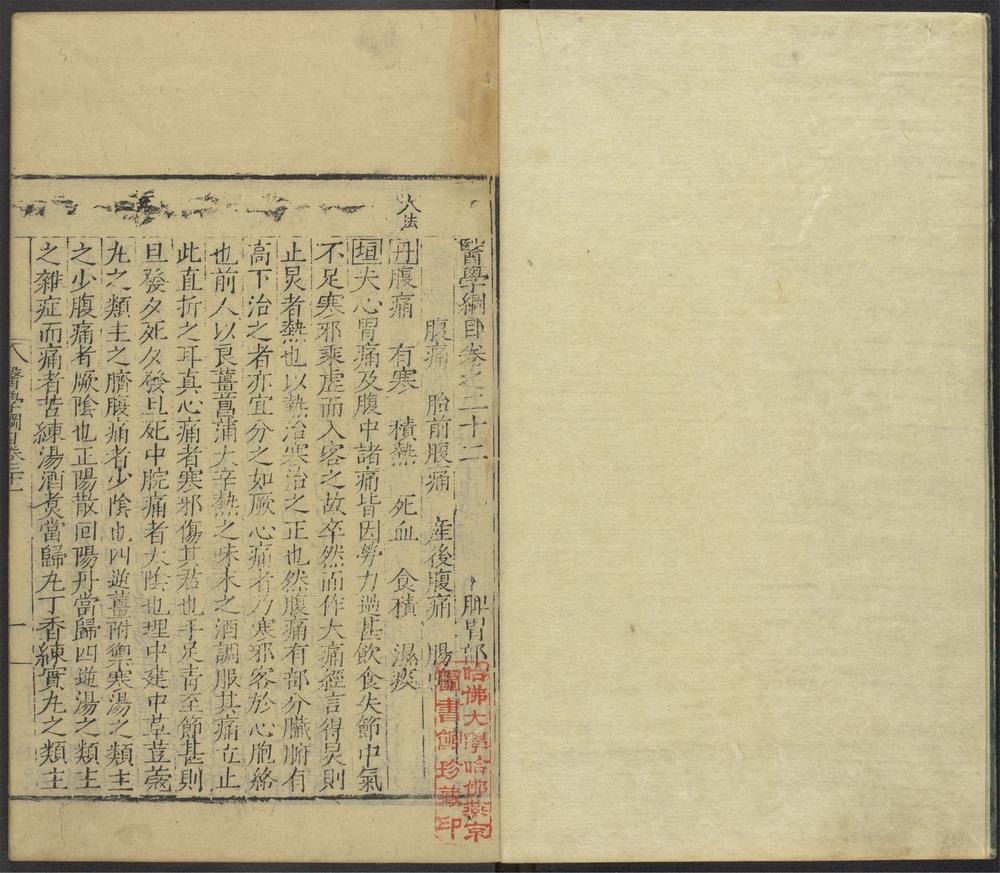 醫學綱目卷之二十二　脾胃部
腹痛　胎前腹痛　產後腹痛　腸
大法
丹腹痛　有寒　積熱　死血　食積　濕痰
垣夫心胃痛及腹中諸痛皆因勞力過甚飲食失節中氣
不足寒邪乘虛而入客之故卒然而作大痛經言得炅則
止炅者熱也以熱治寒治之正也然腹痛有部分臟腑有
高下治之者亦宜分之如厥心痛者乃寒邪客於心胞絡
也前人以良薑菖蒲大辛熱之味末之酒調服其痛立止
此直折之耳真心痛者寒邪傷其君也手足青至節甚則
旦發夕死夕發旦死中脘痛者太陰也理中建中草荳蔻
丸之類主之臍腹痛者少陰也四逆薑附禦寒湯之類主
之少腹痛者厥陰也正陽散回陽丹當歸四逆湯之類主
之雜症而痛者苦練湯酒煮當歸丸丁香練實丸之類主
醫學綱目卷二十二　一
哈佛大學哈佛燕京
圖書館珍藏印